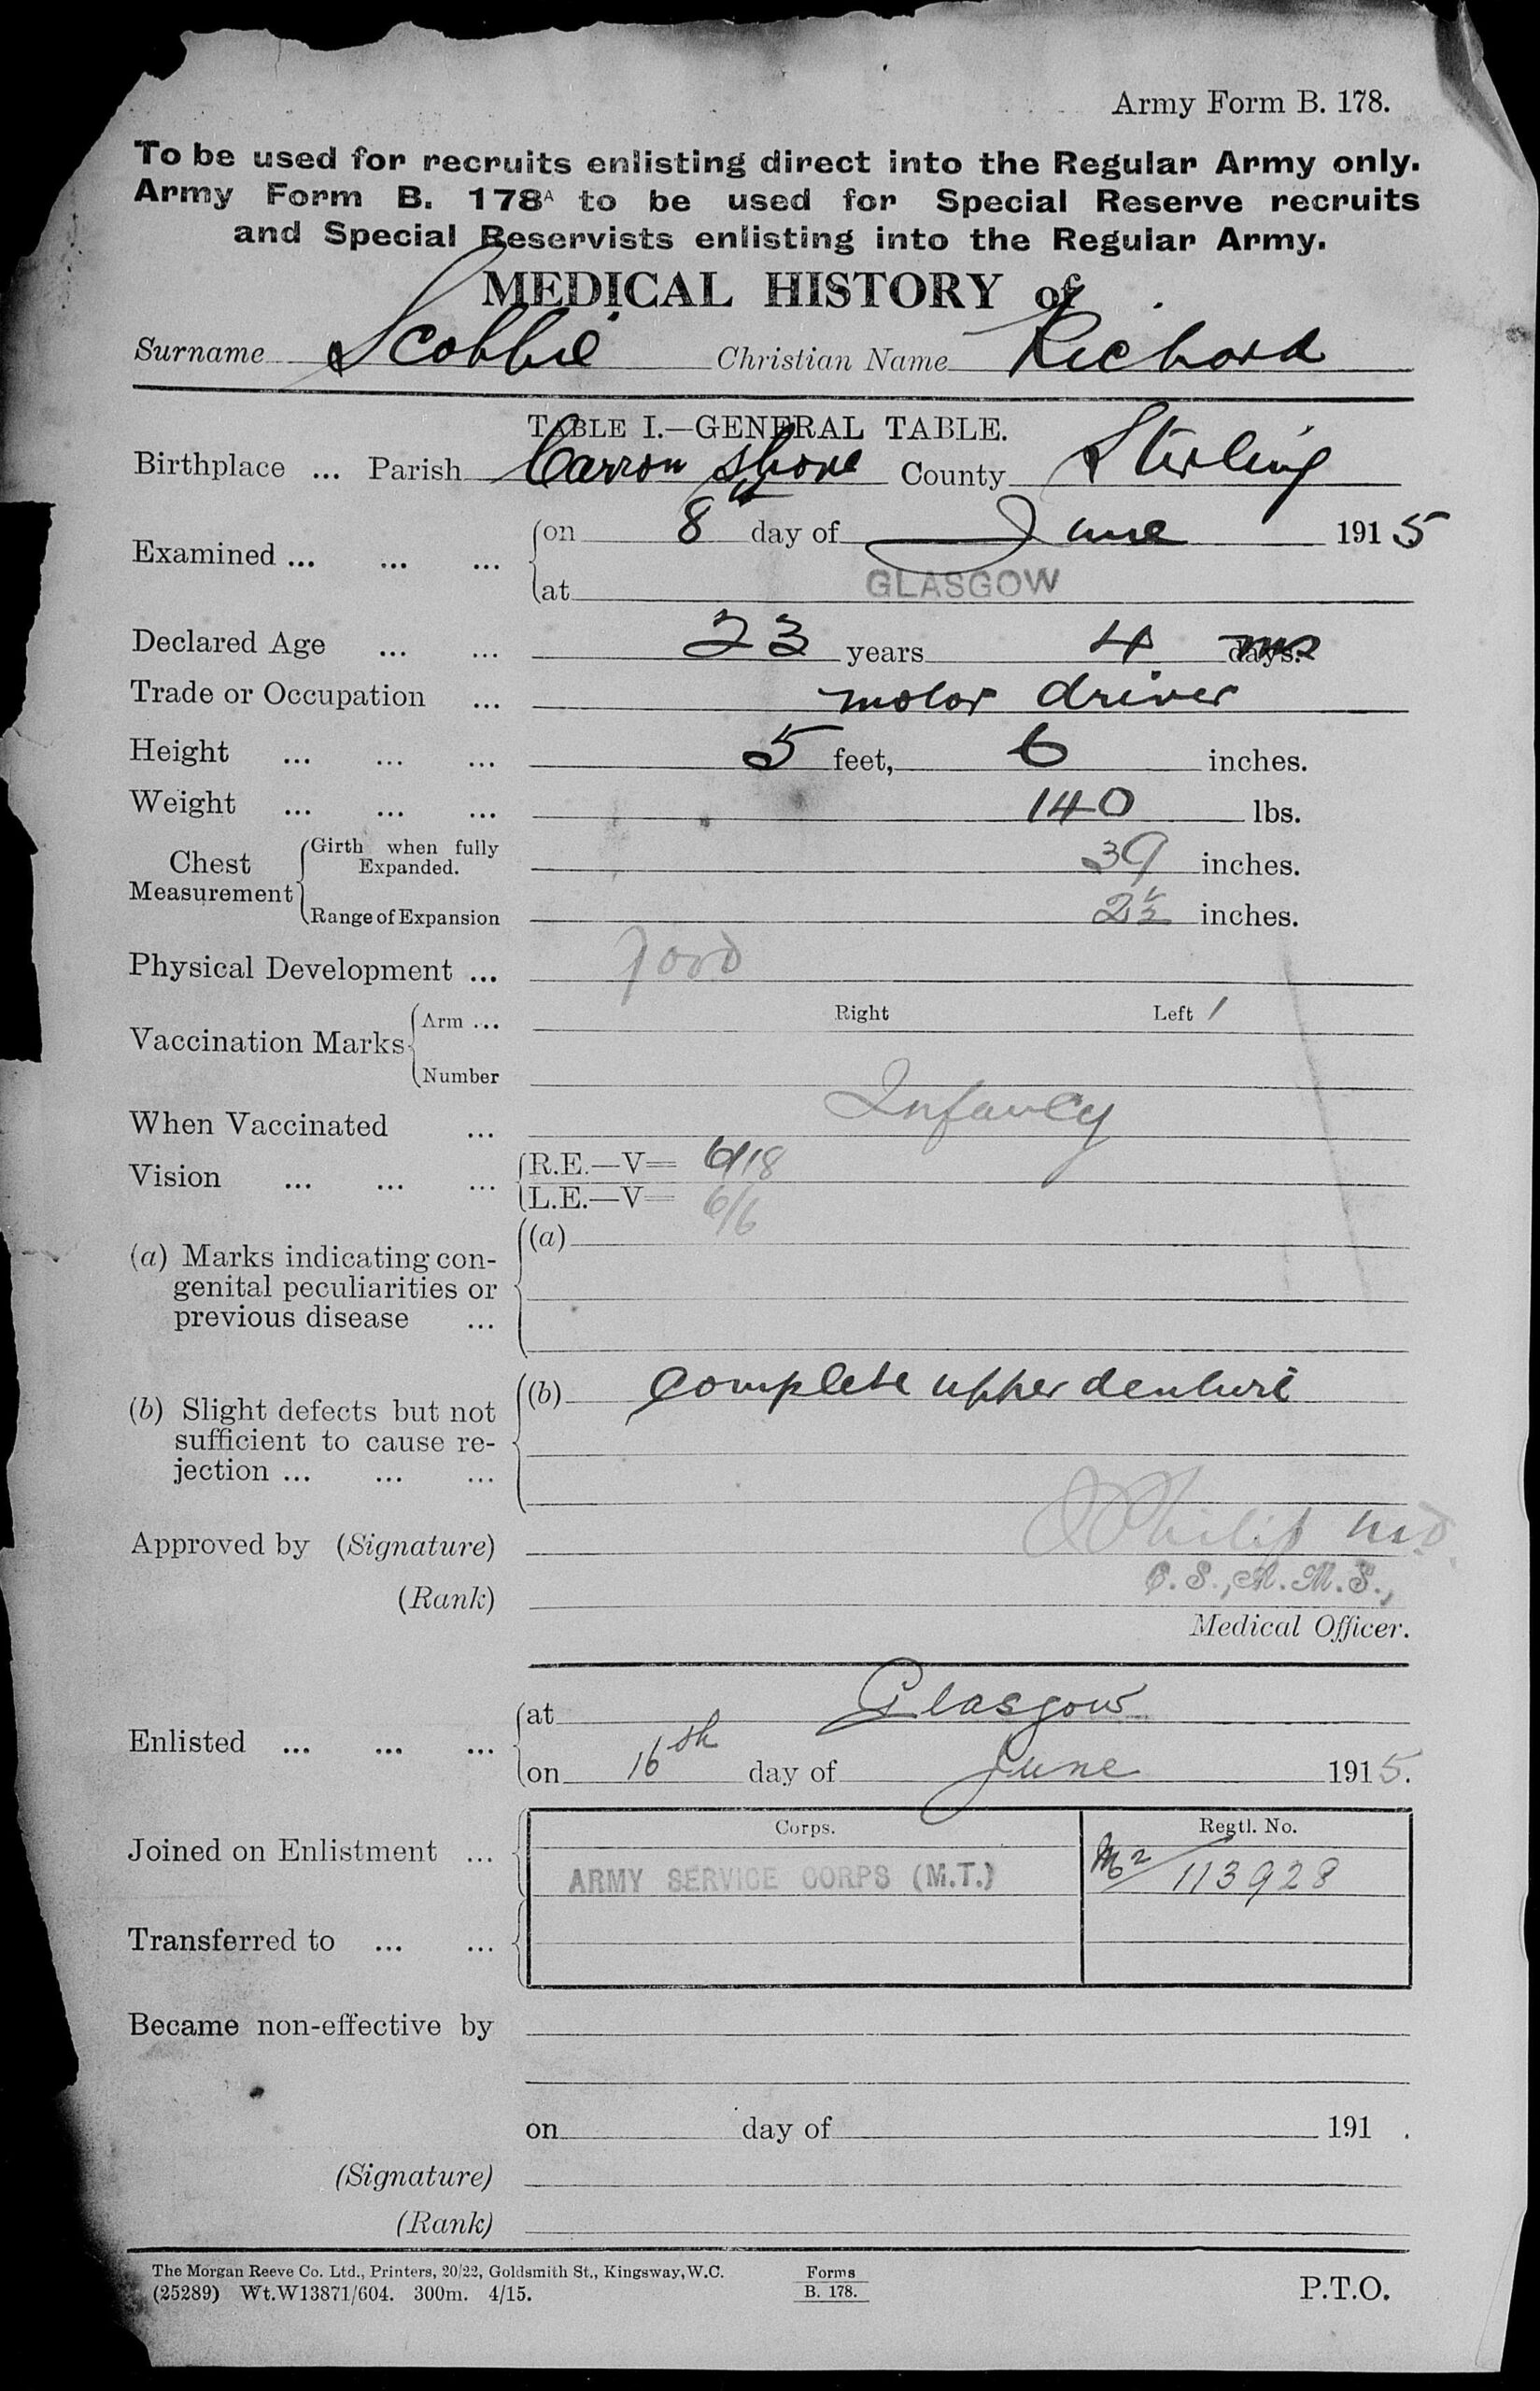 Army Form B. 178.
To be used for recruits enlisting direct into the Regular Army only.
Army Form B. 178A to be used for Special Reserve recruits
and Special Reservists enlisting into the Regular Army.
MEDICAL HISTORY of
Surname Scobbie Christian Name Richard
TABLE I.—GENERAL TABLE.
Birthplace ... Parish Carron Shore County Stirling
Examined ... ... ... on 8th day of June 1915
at GLASGOW
Declared Age ... ... 23 years 4 days. ms
Trade or Occupation ... motor driver
Height ... ... ... 5 feet, 6 inches.
Weight ... ... ... 140 lbs.
Chest Measurement Girth when fully Expanded. 39 inches.
Range of Expansion 2½ inches.
Physical Development ... good
Vaccination Marks Arm ... Right Left 1
Number
When Vaccinated ... Infancy
Vision ... ... ... R.E.—V= 6/18
L.E.—V= 6/6
(a) Marks indicating con- (a)
genital peculiarities or
previous disease ...
(b) Slight defects but not (b) Complete upper denture
sufficient to cause re-
jection ... ... ...
Approved by (Signature) Philip M.D.
(Rank) C.S., R.M.S.,
Medical Officer.
Enlisted ... ... ... at Glasgow
on 16th day of June 1915.
Corps. Regtl. No.
Joined on Enlistment ... ARMY SERVICE CORPS (M.T.) M2/113928
Transferred to ... ...
Became non-effective by
on day of 191 .
(Signature)
(Rank)
The Morgan Reeve Co. Ltd., Printers, 20/22, Goldsmith St., Kingsway, W.C. Forms
(25289) Wt.W13871/604. 300m. 4/15. B. 178. P.T.O.